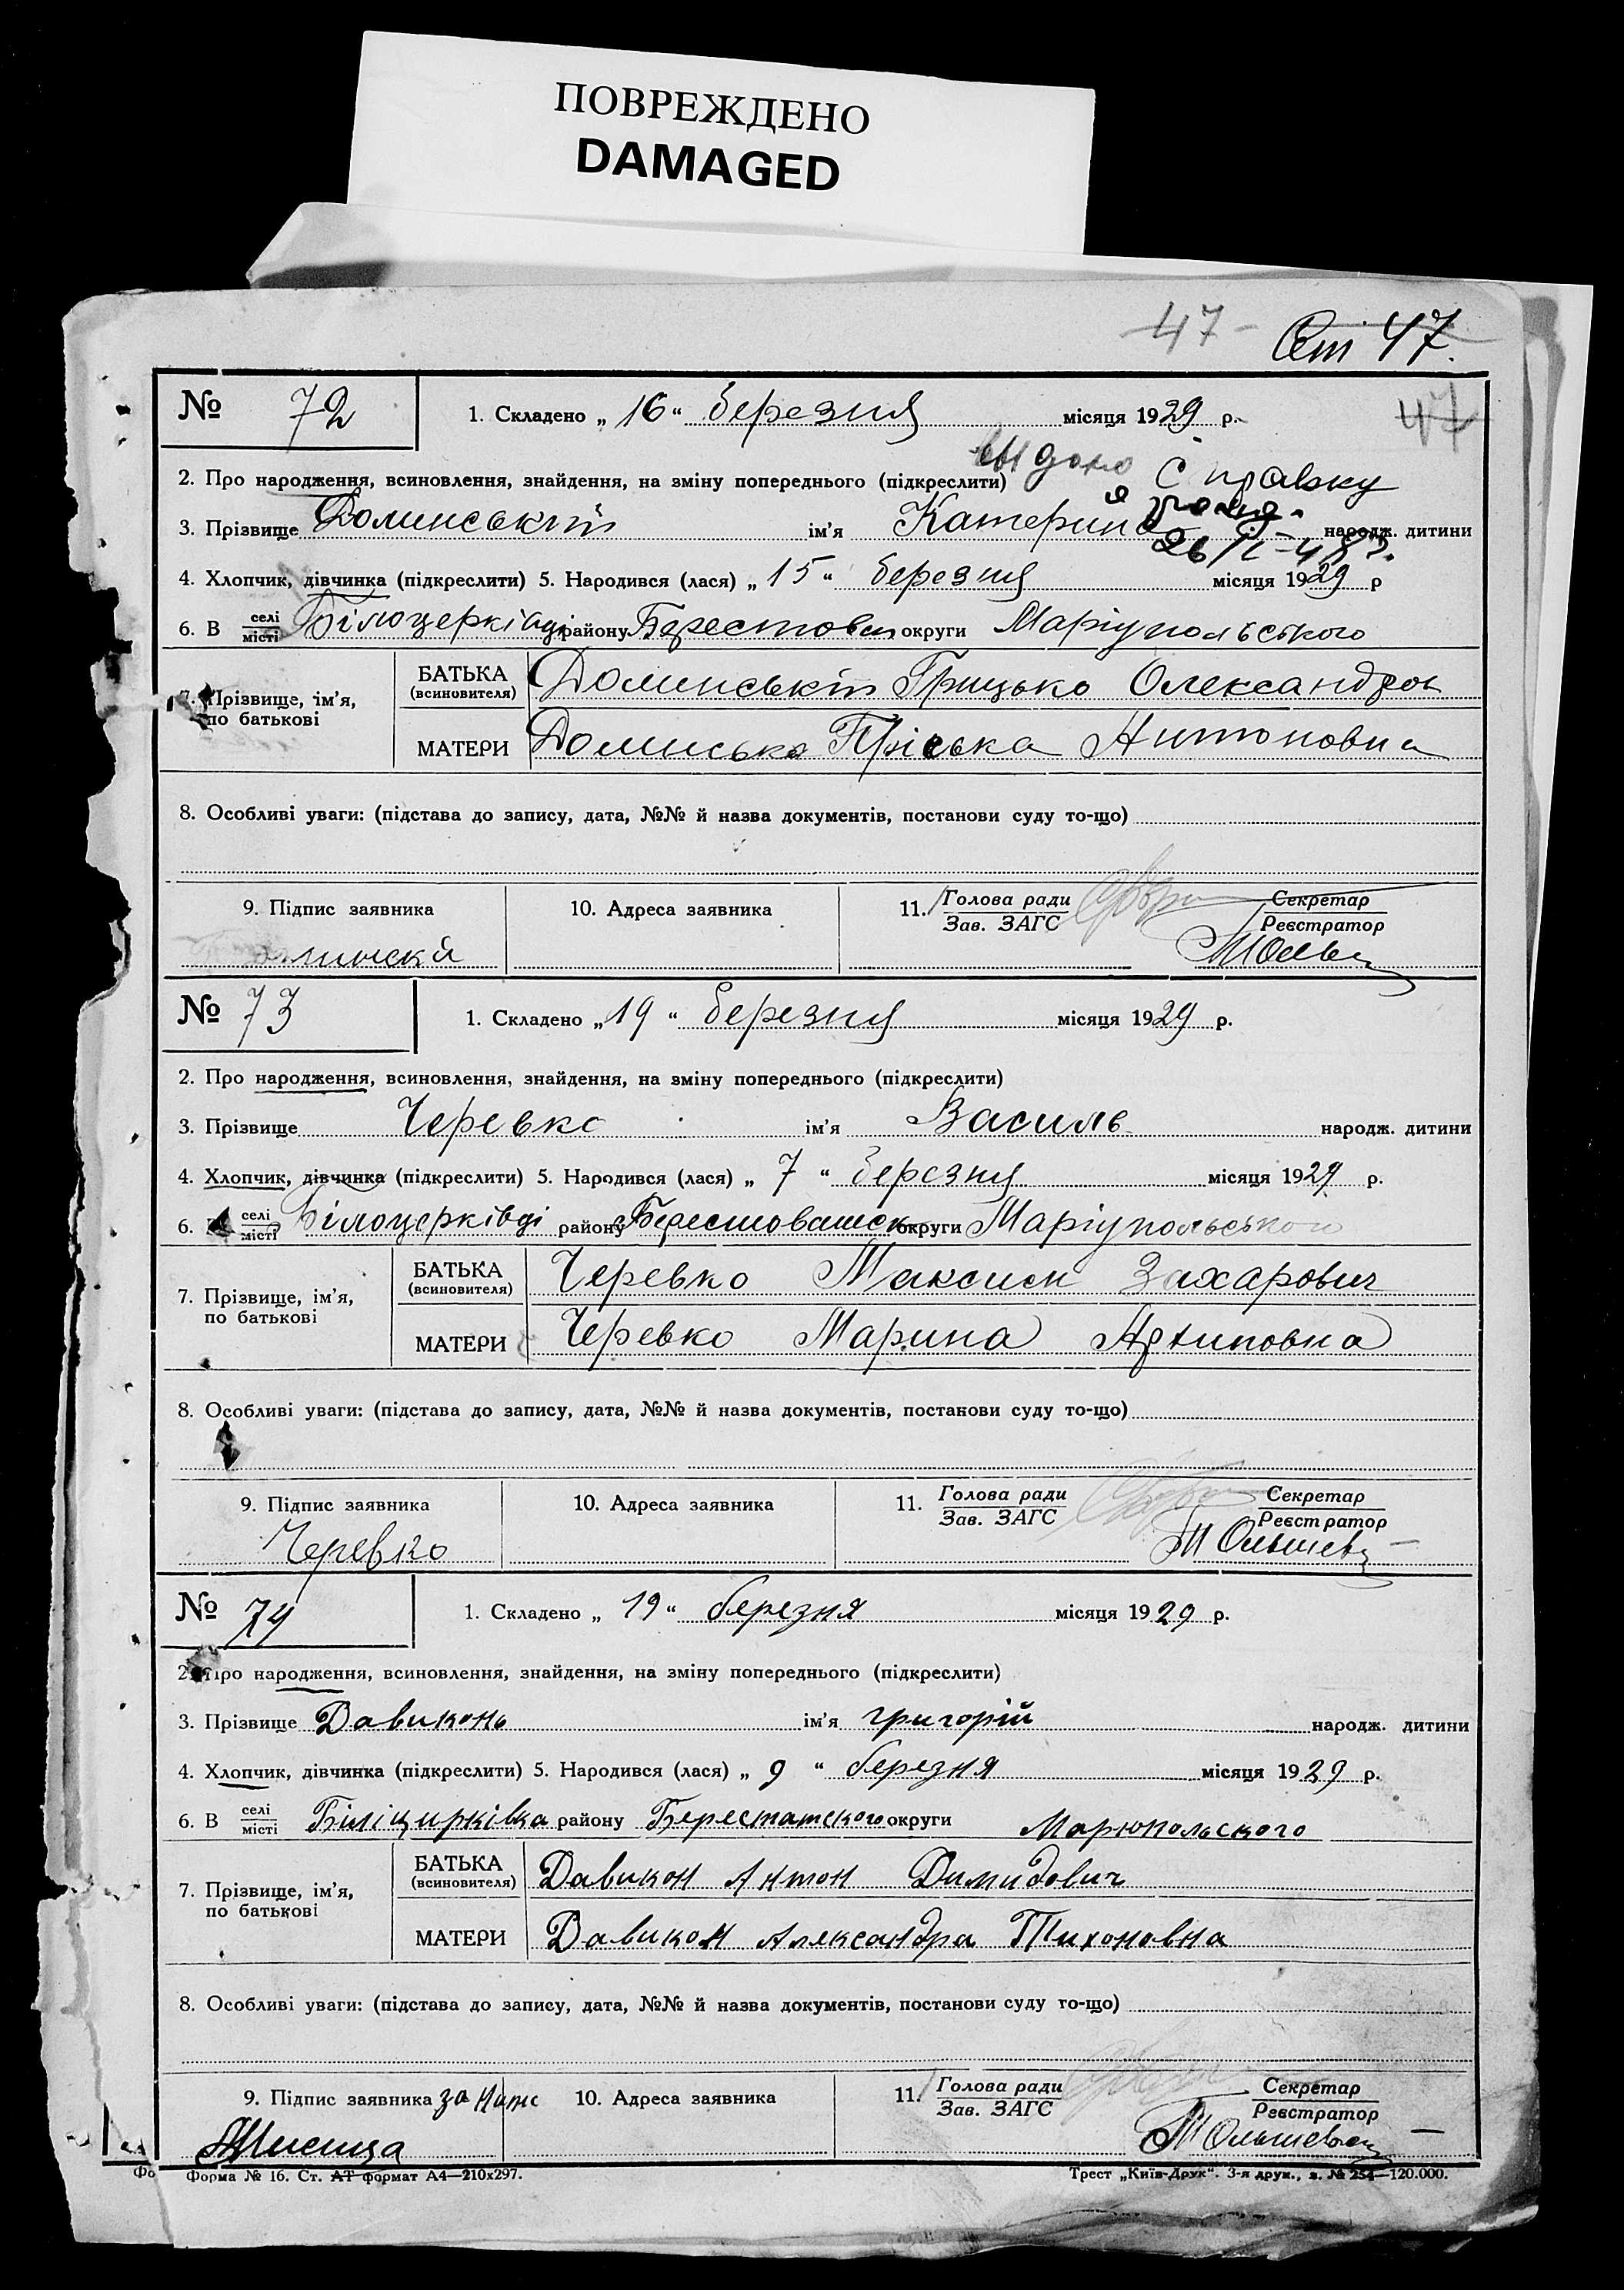 ПОВРЕЖДЕНО
DAMAGED
47 - Ст 47.
47
№ 72 1. Складено „ 16 “ березня місяця 1929 р.
2. Про народження, всиновлення, знайдення, на зміну попереднього (підкреслити) Выдано Справку
3. Прізвище Долинський ім'я Катерина народж. дитини
4. Хлопчик, дівчинка (підкреслити) 5. Народився (лася) „ 15 “ березня місяця 1929 р
6. В селі/місті Білоцерківці району Берестовен округи Маріупольського
7. Прізвище, ім'я, по батькові
БАТЬКА (всиновителя) Долинський Грицько Олександров
МАТЕРИ Долинська Пріська Антоновна
8. Особливі уваги: (підстава до запису, дата, №№ й назва документів, постанови суду то-що)
9. Підпис заявника 10. Адреса заявника 11. Голова ради/Зав. ЗАГС Секретар/Реєстратор
№ 73 1. Складено „ 19 “ березня місяця 1929 р.
2. Про народження, всиновлення, знайдення, на зміну попереднього (підкреслити)
3. Прізвище Черевко ім'я Василь народж. дитини
4. Хлопчик, дівчинка (підкреслити) 5. Народився (лася) „ 7 “ березня місяця 1929 р.
6. селі/місті Білоцерківці району округи Маріупольського
7. Прізвище, ім'я, по батькові
БАТЬКА (всиновителя) Черевко Максим Захарович
МАТЕРИ Черевко Марина Архиповна
8. Особливі уваги: (підстава до запису, дата, №№ й назва документів, постанови суду то-що)
9. Підпис заявника 10. Адреса заявника 11. Голова ради/Зав. ЗАГС Секретар/Реєстратор
Черевко
№ 74 1. Складено „ 19 “ березня місяця 1929 р.
2. Про народження, всиновлення, знайдення, на зміну попереднього (підкреслити)
3. Прізвище Давиконь ім'я григорій народж. дитини
4. Хлопчик, дівчинка (підкреслити) 5. Народився (лася) „ 9 “ березня місяця 1929 р.
6. В селі/місті Біліцирківка району Берестатского округи Марюпольского
7. Прізвище, ім'я, по батькові
БАТЬКА (всиновителя) Давикон Антон Димидович
МАТЕРИ Давикон Александра Тихоновна
8. Особливі уваги: (підстава до запису, дата, №№ й назва документів, постанови суду то-що)
9. Підпис заявника 10. Адреса заявника 11. Голова ради/Зав. ЗАГС Секретар/Реєстратор
Фо Форма № 16. Ст. АТ формат А4—210x297. Трест „Київ-Друк“. 3-я друк., з. № 254—120.000.